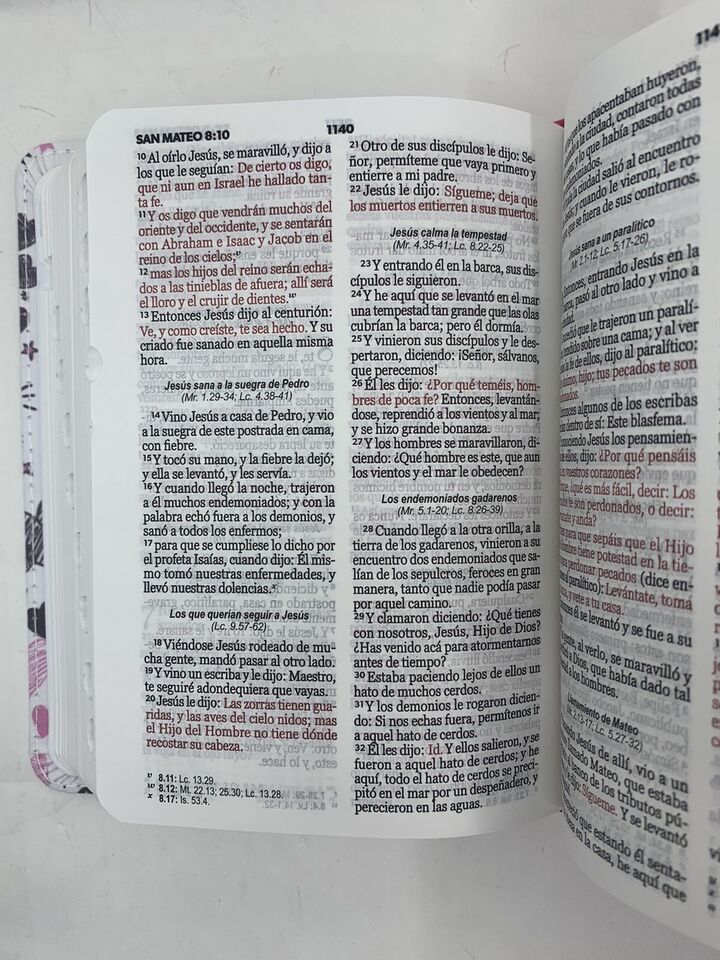 SAN MATEO 8:10
1140
10 Al oírlo Jesús, se maravilló, y dijo a
los que le seguían: De cierto os digo,
que ni aun en Israel he hallado tan-
ta fe.
11 Y os digo que vendrán muchos del
oriente y del occidente, y se sentarán
con Abraham e Isaac y Jacob en el
reino de los cielos;v
12 mas los hijos del reino serán echa-
dos a las tinieblas de afuera; allí será
el lloro y el crujir de dientes.w
13 Entonces Jesús dijo al centurión:
Ve, y como creíste, te sea hecho. Y su
criado fue sanado en aquella misma
hora.
Jesús sana a la suegra de Pedro
(Mr. 1.29-34; Lc. 4.38-41)
14 Vino Jesús a casa de Pedro, y vio
a la suegra de este postrada en cama,
con fiebre.
15 Y tocó su mano, y la fiebre la dejó;
y ella se levantó, y les servía.
16 Y cuando llegó la noche, trajeron
a él muchos endemoniados; y con la
palabra echó fuera a los demonios, y
sanó a todos los enfermos;
17 para que se cumpliese lo dicho por
el profeta Isaías, cuando dijo: Él mis-
mo tomó nuestras enfermedades, y
llevó nuestras dolencias.x
Los que querían seguir a Jesús
(Lc. 9.57-62)
18 Viéndose Jesús rodeado de mu-
cha gente, mandó pasar al otro lado.
19 Y vino un escriba y le dijo: Maestro,
te seguiré adondequiera que vayas.
20 Jesús le dijo: Las zorras tienen gua-
ridas, y las aves del cielo nidos; mas
el Hijo del Hombre no tiene dónde
recostar su cabeza.
v 8.11: Lc. 13.29.
w 8.12: Mt. 22.13; 25.30; Lc. 13.28.
x 8.17: Is. 53.4.
21 Otro de sus discípulos le dijo: Se-
ñor, permíteme que vaya primero y
entierre a mi padre.
22 Jesús le dijo: Sígueme; deja que
los muertos entierren a sus muertos.
Jesús calma la tempestad
(Mr. 4.35-41; Lc. 8.22-25)
23 Y entrando él en la barca, sus dis-
cípulos le siguieron.
24 Y he aquí que se levantó en el mar
una tempestad tan grande que las olas
cubrían la barca; pero él dormía.
25 Y vinieron sus discípulos y le des-
pertaron, diciendo: ¡Señor, sálvanos,
que perecemos!
26 Él les dijo: ¿Por qué teméis, hom-
bres de poca fe? Entonces, levantán-
dose, reprendió a los vientos y al mar;
y se hizo grande bonanza.
27 Y los hombres se maravillaron, di-
ciendo: ¿Qué hombre es este, que aun
los vientos y el mar le obedecen?
Los endemoniados gadarenos
(Mr. 5.1-20; Lc. 8.26-39)
28 Cuando llegó a la otra orilla, a la
tierra de los gadarenos, vinieron a su
encuentro dos endemoniados que sa-
lían de los sepulcros, feroces en gran
manera, tanto que nadie podía pasar
por aquel camino.
29 Y clamaron diciendo: ¿Qué tienes
con nosotros, Jesús, Hijo de Dios?
¿Has venido acá para atormentarnos
antes de tiempo?
30 Estaba paciendo lejos de ellos un
hato de muchos cerdos.
31 Y los demonios le rogaron dicien-
do: Si nos echas fuera, permítenos ir
a aquel hato de cerdos.
32 Él les dijo: Id. Y ellos salieron, y se
fueron a aquel hato de cerdos; y he
aquí, todo el hato de cerdos se preci-
pitó en el mar por un despeñadero, y
perecieron en las aguas.
114
que los apacentaban huyeron,
a la ciudad, contaron todas
y lo que había pasado con
la ciudad salió al encuentro
y cuando le vieron, le ro-
que se fuera de sus contornos.
Jesús sana a un paralítico
(Mr. 2.1-12; Lc. 5.17-26)
Entonces, entrando Jesús en la
pasó al otro lado y vino a
que le trajeron un paralí-
tendido sobre una cama; y al ver
la fe de ellos, dijo al paralítico:
hijo; tus pecados te son
algunos de los escribas
dentro de sí: Este blasfema.
Jesús los pensamien-
de ellos, dijo: ¿Por qué pensáis
en vuestros corazones?
¿qué es más fácil, decir: Los
te son perdonados, o decir:
y anda?
para que sepáis que el Hijo
tiene potestad en la tie-
perdonar pecados (dice en-
al paralítico): Levántate, toma
y vete a tu casa.
él se levantó y se fue a su
gente, al verlo, se maravilló y
a Dios, que había dado tal
a los hombres.
Llamamiento de Mateo
2.13-17; Lc. 5.27-32)
Jesús de allí, vio a un
llamado Mateo, que estaba
al banco de los tributos pú-
dijo: Sígueme. Y se levantó
que estando él senta-
en la casa, he aquí que